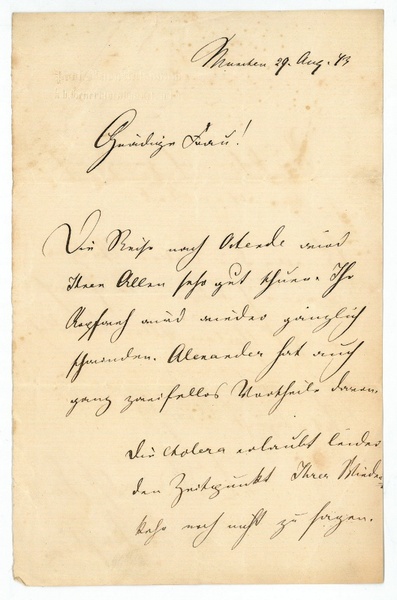 München 29. Aug. 73
Gnädige Frau!
Die Reise nach Ostende wird
Ihnen Allen sehr gut thuen. Ihr
Kopfweh wird wieder gänzlich
schwinden. Alexander hat auch
ganz zweifellos Vortheile davon.
Die Cholera erlaubt leider
den Zeitpunkt Ihrer Wieder-
kehr noch nicht zu sagen.